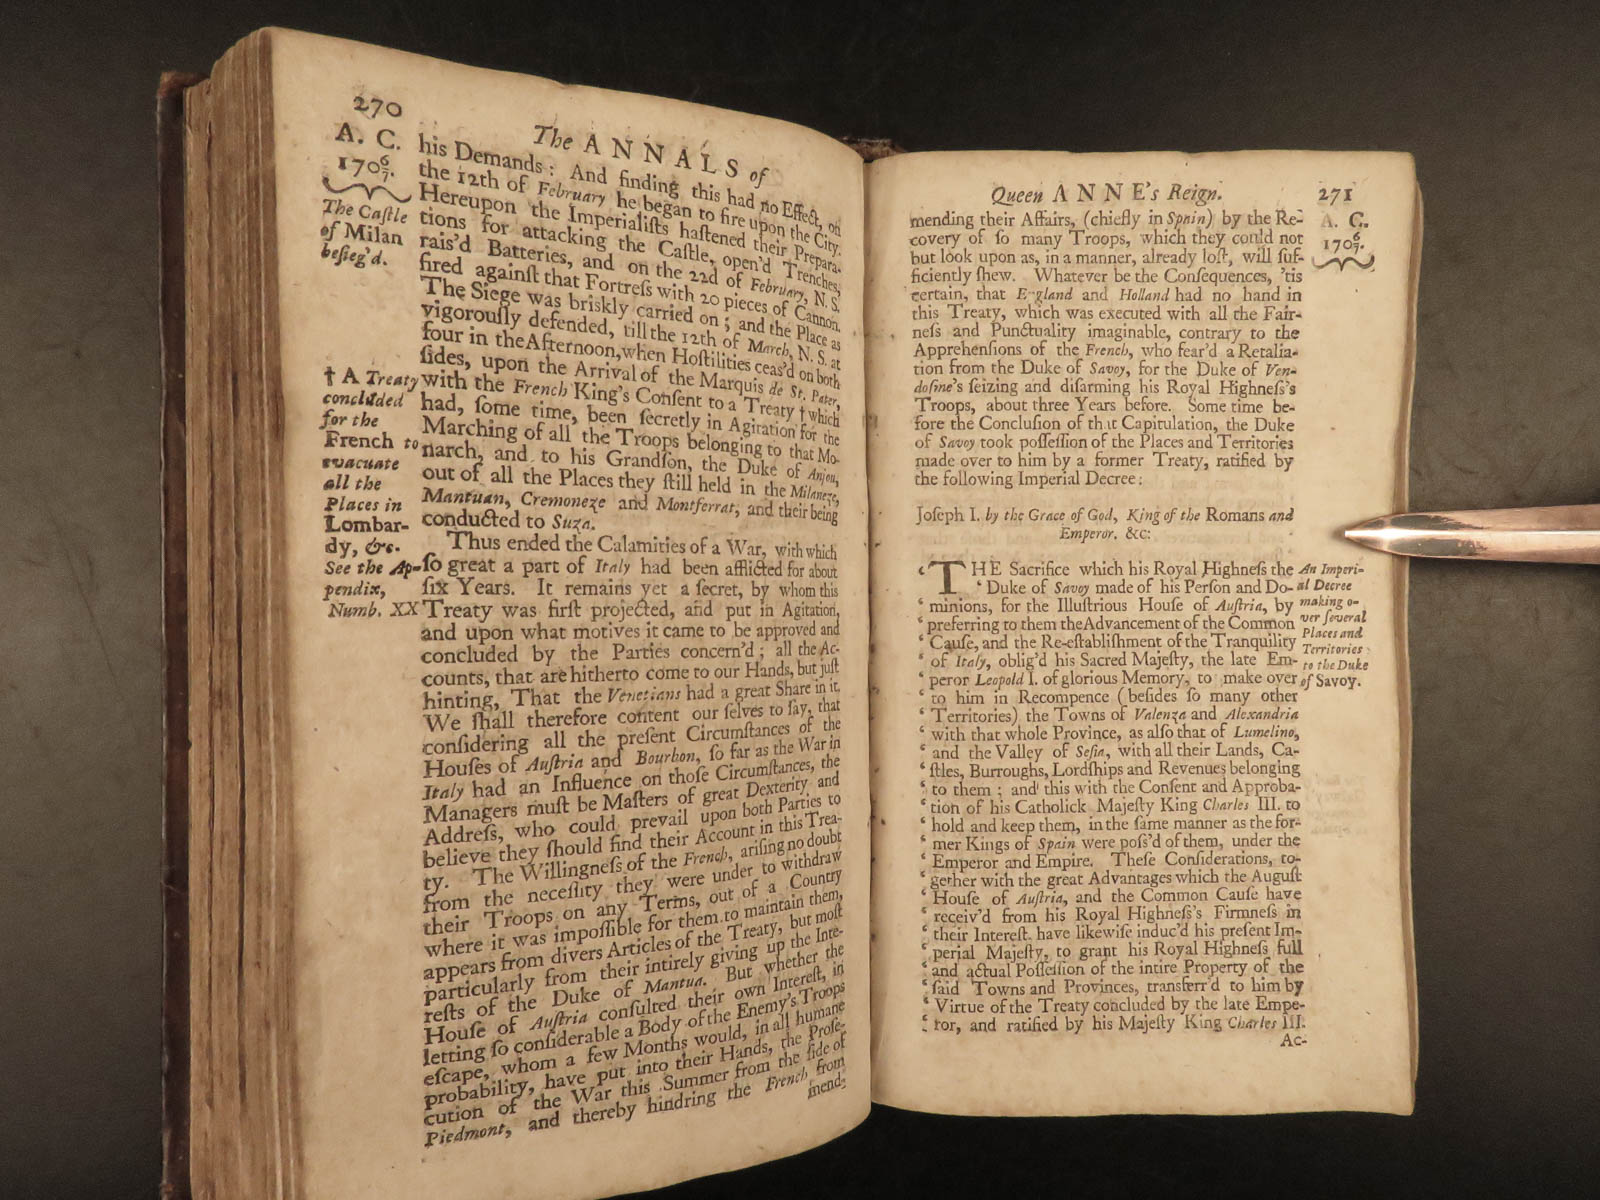 270
The ANNALS of
A. C.
170 6/7.
The Caſtle
of Milan
beſieg'd.
his Demands: And finding this had no Effect, on
the 12th of February he began to fire upon the City.
Hereupon the Imperialiſts haſtened their Prepara-
tions for attacking the Caſtle, open'd Trenches,
rais'd Batteries, and on the 22d of February, N. S.
fired againſt that Fortreſs with 20 pieces of Cannon.
The Siege was briskly carried on; and the Place as
vigorouſly defended, till the 12th of March, N. S. at
four in the Afternoon, when Hoſtilities ceas'd on both
ſides, upon the Arrival of the Marquis de St. Pater,
with the French King's Conſent to a Treaty † which
had, ſome time, been ſecretly in Agitation for the
Marching of all the Troops belonging to that Mo-
narch, and to his Grandſon, the Duke of Anjou,
out of all the Places they ſtill held in the Milaneze,
Mantuan, Cremoneze and Montferrat, and their being
conducted to Suza.
† A Treaty
concluded
for the
French to
evacuate
all the
Places in
Lombar-
dy, &c.
See the Ap-
pendix,
Numb. XX
Thus ended the Calamities of a War, with which
ſo great a part of Italy had been afflicted for about
ſix Years. It remains yet a ſecret, by whom this
Treaty was firſt projected, and put in Agitation,
and upon what motives it came to be approved and
concluded by the Parties concern'd; all the Ac-
counts, that are hitherto come to our Hands, but juſt
hinting, That the Venetians had a great Share in it.
We ſhall therefore content our ſelves to ſay, that
conſidering all the preſent Circumſtances of the
Houſes of Auſtria and Bourbon, ſo far as the War in
Italy had an Influence on thoſe Circumſtances, the
Managers muſt be Maſters of great Dexterity and
Addreſs, who could prevail upon both Parties to
believe they ſhould find their Account in this Trea-
ty. The Willingneſs of the French, ariſing no doubt
from the neceſſity they were under to withdraw
their Troops on any Terms, out of a Country
where it was impoſſible for them to maintain them,
appears from divers Articles of the Treaty, but moſt
particularly from their intirely giving up the Inte-
reſts of the Duke of Mantua. But whether the
Houſe of Auſtria conſulted their own Intereſt, in
letting ſo conſiderable a Body of the Enemy's Troops
eſcape, whom a few Months would, in all humane
probability, have put into their Hands, the Proſe-
cution of the War this Summer from the ſide of
Piedmont, and thereby hindring the French from
mend-
Queen ANNE's Reign.
271
A. C.
170 6/7.
mending their Affairs, (chiefly in Spain) by the Re-
covery of ſo many Troops, which they could not
but look upon as, in a manner, already loſt, will ſuf-
ficiently ſhew. Whatever be the Conſequences, 'tis
certain, that England and Holland had no hand in
this Treaty, which was executed with all the Fair-
neſs and Punctuality imaginable, contrary to the
Apprehenſions of the French, who fear'd a Retalia-
tion from the Duke of Savoy, for the Duke of Ven-
doſme's ſeizing and diſarming his Royal Highneſs's
Troops, about three Years before. Some time be-
fore the Concluſion of that Capitulation, the Duke
of Savoy took poſſeſſion of the Places and Territories
made over to him by a former Treaty, ratified by
the following Imperial Decree:
Joſeph I. by the Grace of God, King of the Romans and
Emperor, &c:
‘ THE Sacrifice which his Royal Highneſs the
‘ Duke of Savoy made of his Perſon and Do-
‘ minions, for the Illuſtrious Houſe of Auſtria, by
‘ preferring to them the Advancement of the Common
‘ Cauſe, and the Re-eſtabliſhment of the Tranquility
‘ of Italy, oblig'd his Sacred Majeſty, the late Em-
‘ peror Leopold I. of glorious Memory, to make over
‘ to him in Recompence (beſides ſo many other
‘ Territories) the Towns of Valenza and Alexandria
‘ with that whole Province, as alſo that of Lumelino,
‘ and the Valley of Seſia, with all their Lands, Ca-
‘ ſtles, Burroughs, Lordſhips and Revenues belonging
‘ to them; and this with the Conſent and Approba-
‘ tion of his Catholick Majeſty King Charles III. to
‘ hold and keep them, in the ſame manner as the for-
‘ mer Kings of Spain were poſs'd of them, under the
‘ Emperor and Empire. Theſe Conſiderations, to-
‘ gether with the great Advantages which the Auguſt
‘ Houſe of Auſtria, and the Common Cauſe have
‘ receiv'd from his Royal Highneſs's Firmneſs in
‘ their Intereſt, have likewiſe induc'd his preſent Im-
‘ perial Majeſty, to grant his Royal Highneſs full
‘ and actual Poſſeſſion of the intire Property of the
‘ ſaid Towns and Provinces, transferr'd to him by
‘ Virtue of the Treaty concluded by the late Empe-
‘ ror, and ratified by his Majeſty King Charles III.
Ac-
An Imperi-
al Decree
making o-
ver ſeveral
Places and
Territories
to the Duke
of Savoy.